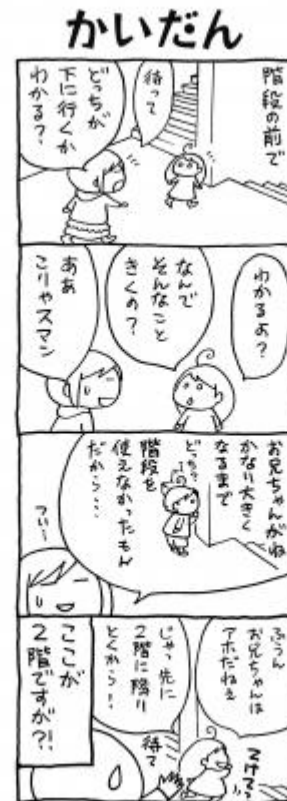 かいだん
階段の前で
待って
どっちが
下に行くか
わかる？
わかるよ？
なんで
そんなこと
きくの？
ああ
こりゃスマン
お兄ちゃんがね
かない大きく
なるまで
どっち？
階段を
使えなかったもん
だから…
つい…
ふうん
お兄ちゃんは
アホだねぇ
じゃっ先に
2階に降り
とくから！
待て
ここが
2階ですが？！